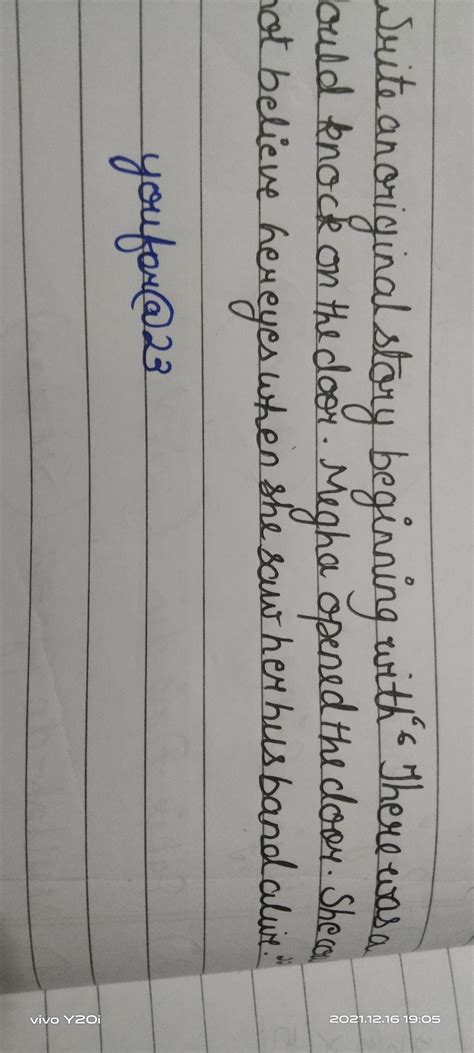 Write an original story beginning with "There was a
oud knock on the door. Megha opened the door. She cou
not believe her eyes when she saw her husband alive."
youfor@23
vivo Y20i
2021.12.16 19:05